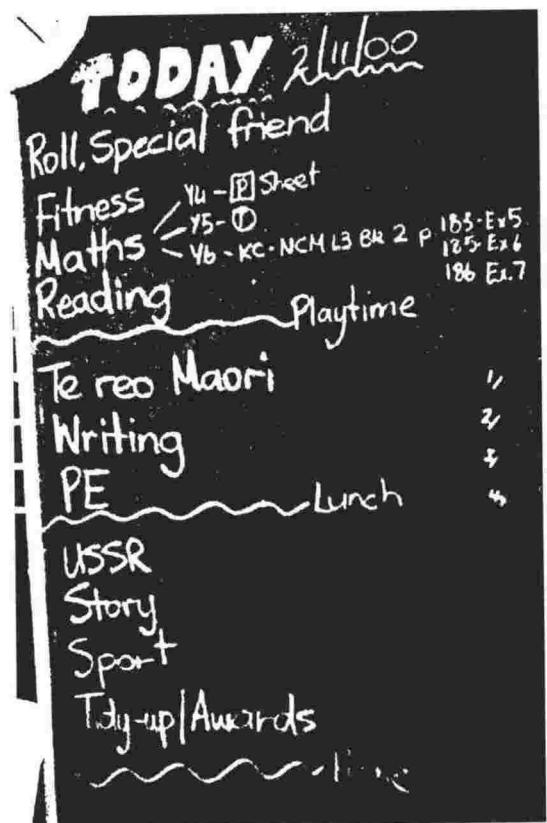 TODAY 2/11/00
Roll, Special friend
Fitness
Y4 - P Sheet
Maths
Y5 - T
Y6 - KC - NCM L3 BK 2 P 183-Ex5
185-Ex6
186 Ex.7
Reading
Playtime
Te reo Maori
1/
Writing
2/
3/
PE
4/
Lunch
USSR
Story
Sport
Tidy-up/Awards